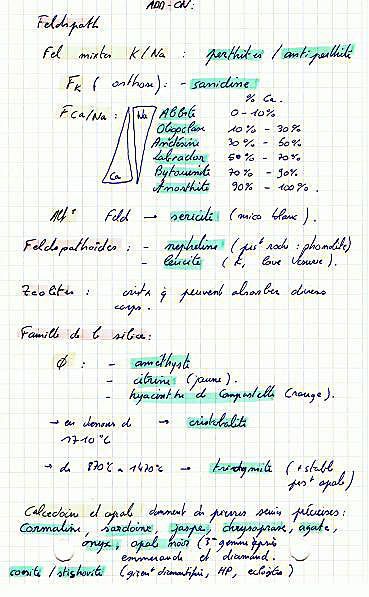 ADD-ON:
Feldspath
Fel mixtes K/Na : perthites / antiperthite
FK ( orthose) : - sanidine
% Ca.
FCa/Na : Na Albite 0 - 10%
Ca
Oligoclase 10% - 30%
Andésine 30% - 50%
Labrador 50% - 70%
Bytownite 70% - 90%
Anorthite 90% - 100%.
Alt° Feld → séricite (mica blanc).
Feldspathoïdes : - népheline ( roche : phonolite)
- leucite ( K, lave Vésuve).
Zeolites : crist x q peuvent absorber divers
corps.
Famille de la silice :
Φ : - améthyste
- citrine (jaune).
- hyacinthe de Compostelle (rouge).
→ en dessous de → cristobalite
1710°C
→ de 870°C à 1470°C → tridymite ( + stable
opale)
Calcédoine et opale donnent de pierres semis précieuses :
Cornaline, sardoine, jaspe, chrysoprase, agate,
onyx, opale noir (3e gemme après
emmeraude et diamand.
coesite / stishovite (gisent diamantifère, HP, eclogites)